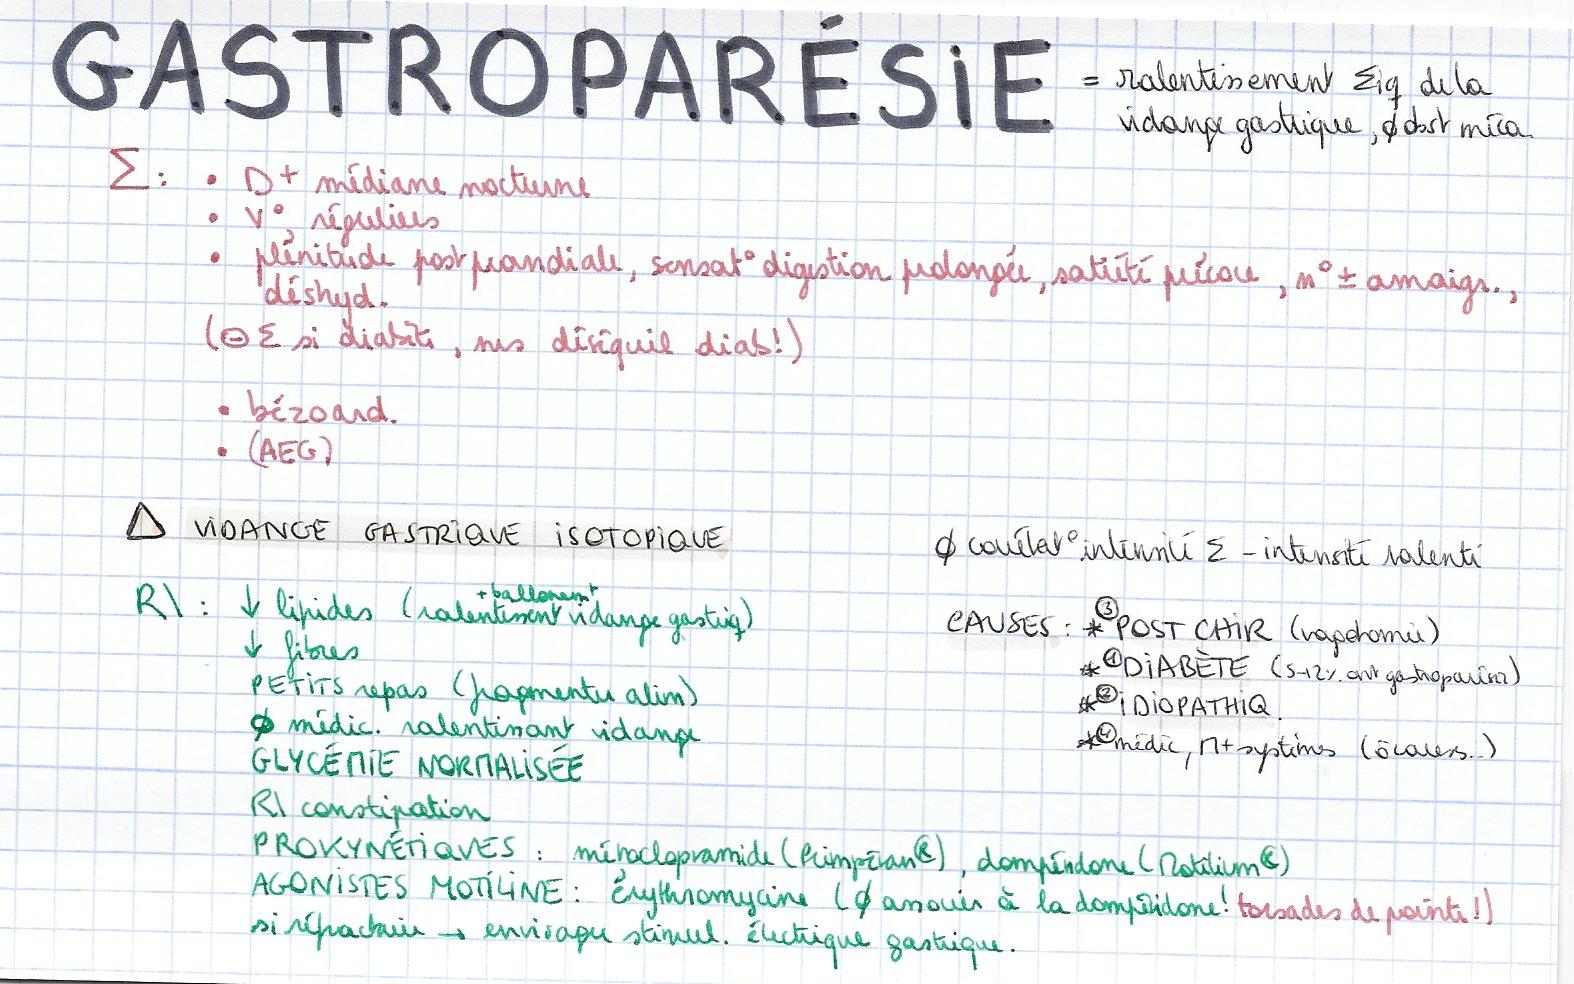 GASTROPARÉSIE = ralentissement Σiq de la
vidange gastrique, ∅ obst méca.
Σ : • D+ médiane nocturne
• V° réguliers
• plénitude postprandiale, sensat° digestion prolongée, satiété précoce, n° ± amaigr.,
déshyd.
(⊖ Σ si diabète, ms déséquil diab!)
• bézoard.
• (AEG)
△ VIDANGE GASTRIQUE ISOTOPIQUE
∅ corrélat° intensité Σ - intensité ralenti
R\ : ↓ lipides (ralentissent vidange gastriq)
+ ballonemt
↓ fibres
PETITS repas (fragmenter alim)
∅ médic. ralentissant vidange
GLYCÉMIE NORMALISÉE
R\ constipation
PROKYNÉTIQUES : métoclopramide (Primpéran®), dompéridone (Motilium®)
AGONISTES MOTILINE : Érythromycine (∅ associer à la dompéridone! torsades de pointe!)
si réfractaire → envisager stimul. électrique gastrique.
CAUSES : * ③ POST CHIR (vagotomie)
* ① DIABÈTE (5-12% ont gastroparésie)
* ② IDIOPATHIQ.
* ④ médic, M+ systèmes